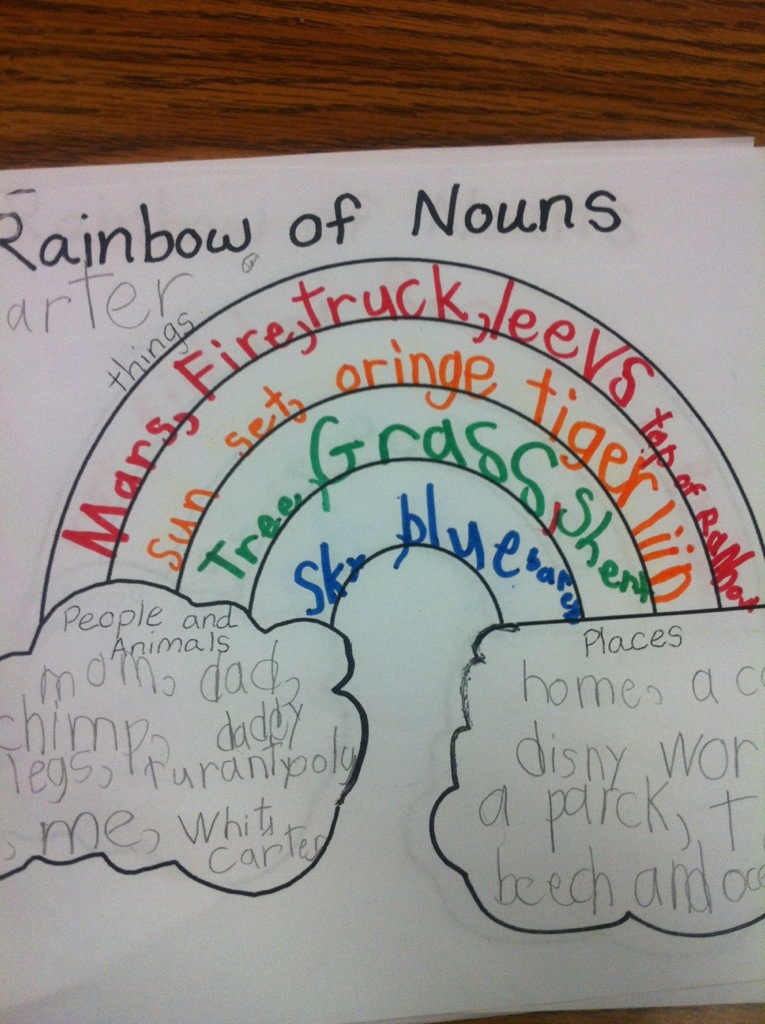 Rainbow of Nouns
arter
things
Mars, Fire, truck, leevs top of
sun set, oringe tiger
Tree, Grass,
Sky blue
People and
Animals
mom, dad,
chimp, daddy
legs,
, me, Whit,
carter
Places
home, a
disny wor
a parck, t
beech and oce